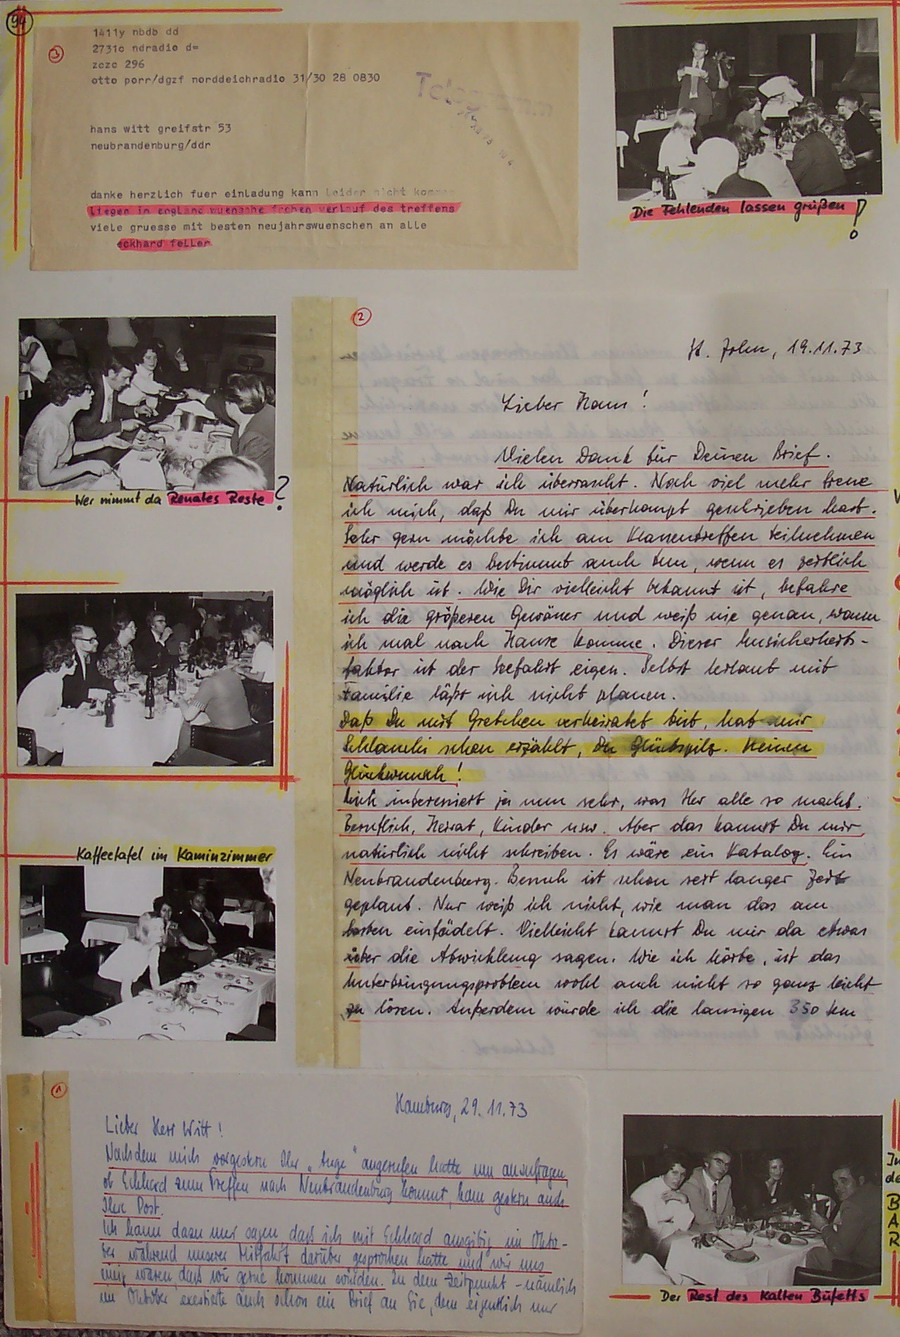 94
3
1411y nbdb dd
2731c ndradio d=
zczc 296
otto porr/dgzf norddeichradio 31/30 28 0830
Telegramm
hans witt greifstr 53
neubrandenburg/ddr
danke herzlich fuer einladung kann leider nicht kommen
liegen in england wuensche frohen verlauf des treffens
viele gruesse mit besten neujahrswuenschen an alle
eckhard feller
Die Fehlenden lassen grüßen!
Wer nimmt da Renates Reste?
Kaffeetafel im Kaminzimmer
2
19.11.73
Lieber Hans!
Vielen Dank für Deinen Brief.
Natürlich war ich überrascht. Noch viel mehr freue
ich mich, daß Du mir überhaupt geschrieben hast.
Sehr gern möchte ich am Klassentreffen teilnehmen
und werde es bestimmt auch tun, wenn es zeitlich
möglich ist. Wie Dir vielleicht bekannt ist, befahre
ich die größeren Gewässer und weiß nie genau, wann
ich mal nach Hause komme. Dieser Unsicherheits-
faktor ist der Seefahrt eigen. Selbst Urlaub mit
Familie läßt sich nicht planen.
Daß Du mit Gretchen verheiratet bist, hat mir
schon erzählt, Du Glückspilz. Meinen
Glückwunsch!
Mich interessiert ja nun sehr, was Ihr alle so macht.
Beruflich, Heirat, Kinder usw. Aber das kannst Du mir
natürlich nicht schreiben. Es wäre ein Katalog. Ein
Neubrandenburg. Besuch ist schon seit langer Zeit
geplant. Nur weiß ich nicht, wie man das am
besten einfädelt. Vielleicht kannst Du mir da etwas
über die Abwicklung sagen. Wie ich hörte, ist das
Unterbringungsproblem wohl auch nicht so ganz leicht
zu lösen. Außerdem würde ich die lausigen 350 km
1
Hamburg, 29.11.73
Lieber Herr Witt!
Nachdem mich vorgestern Ihr "Inge" angerufen hatte um anzufragen,
ob Eckhard zum Treffen nach Neubrandenburg kommt, kam gestern auch
Ihre Post.
Ich kann dazu nur sagen daß ich mit Eckhard ausgibig im Okto-
ber während unserer Mitfahrt darüber gesprochen hatte und wir uns
einig waren, daß wir gerne kommen würden. Zu dem Zeitpunkt - nämlich
im Oktober existierte auch schon ein Brief an Sie, dem eigentlich nur
Der Rest des Kalten Büfetts
In
de
B
A
R